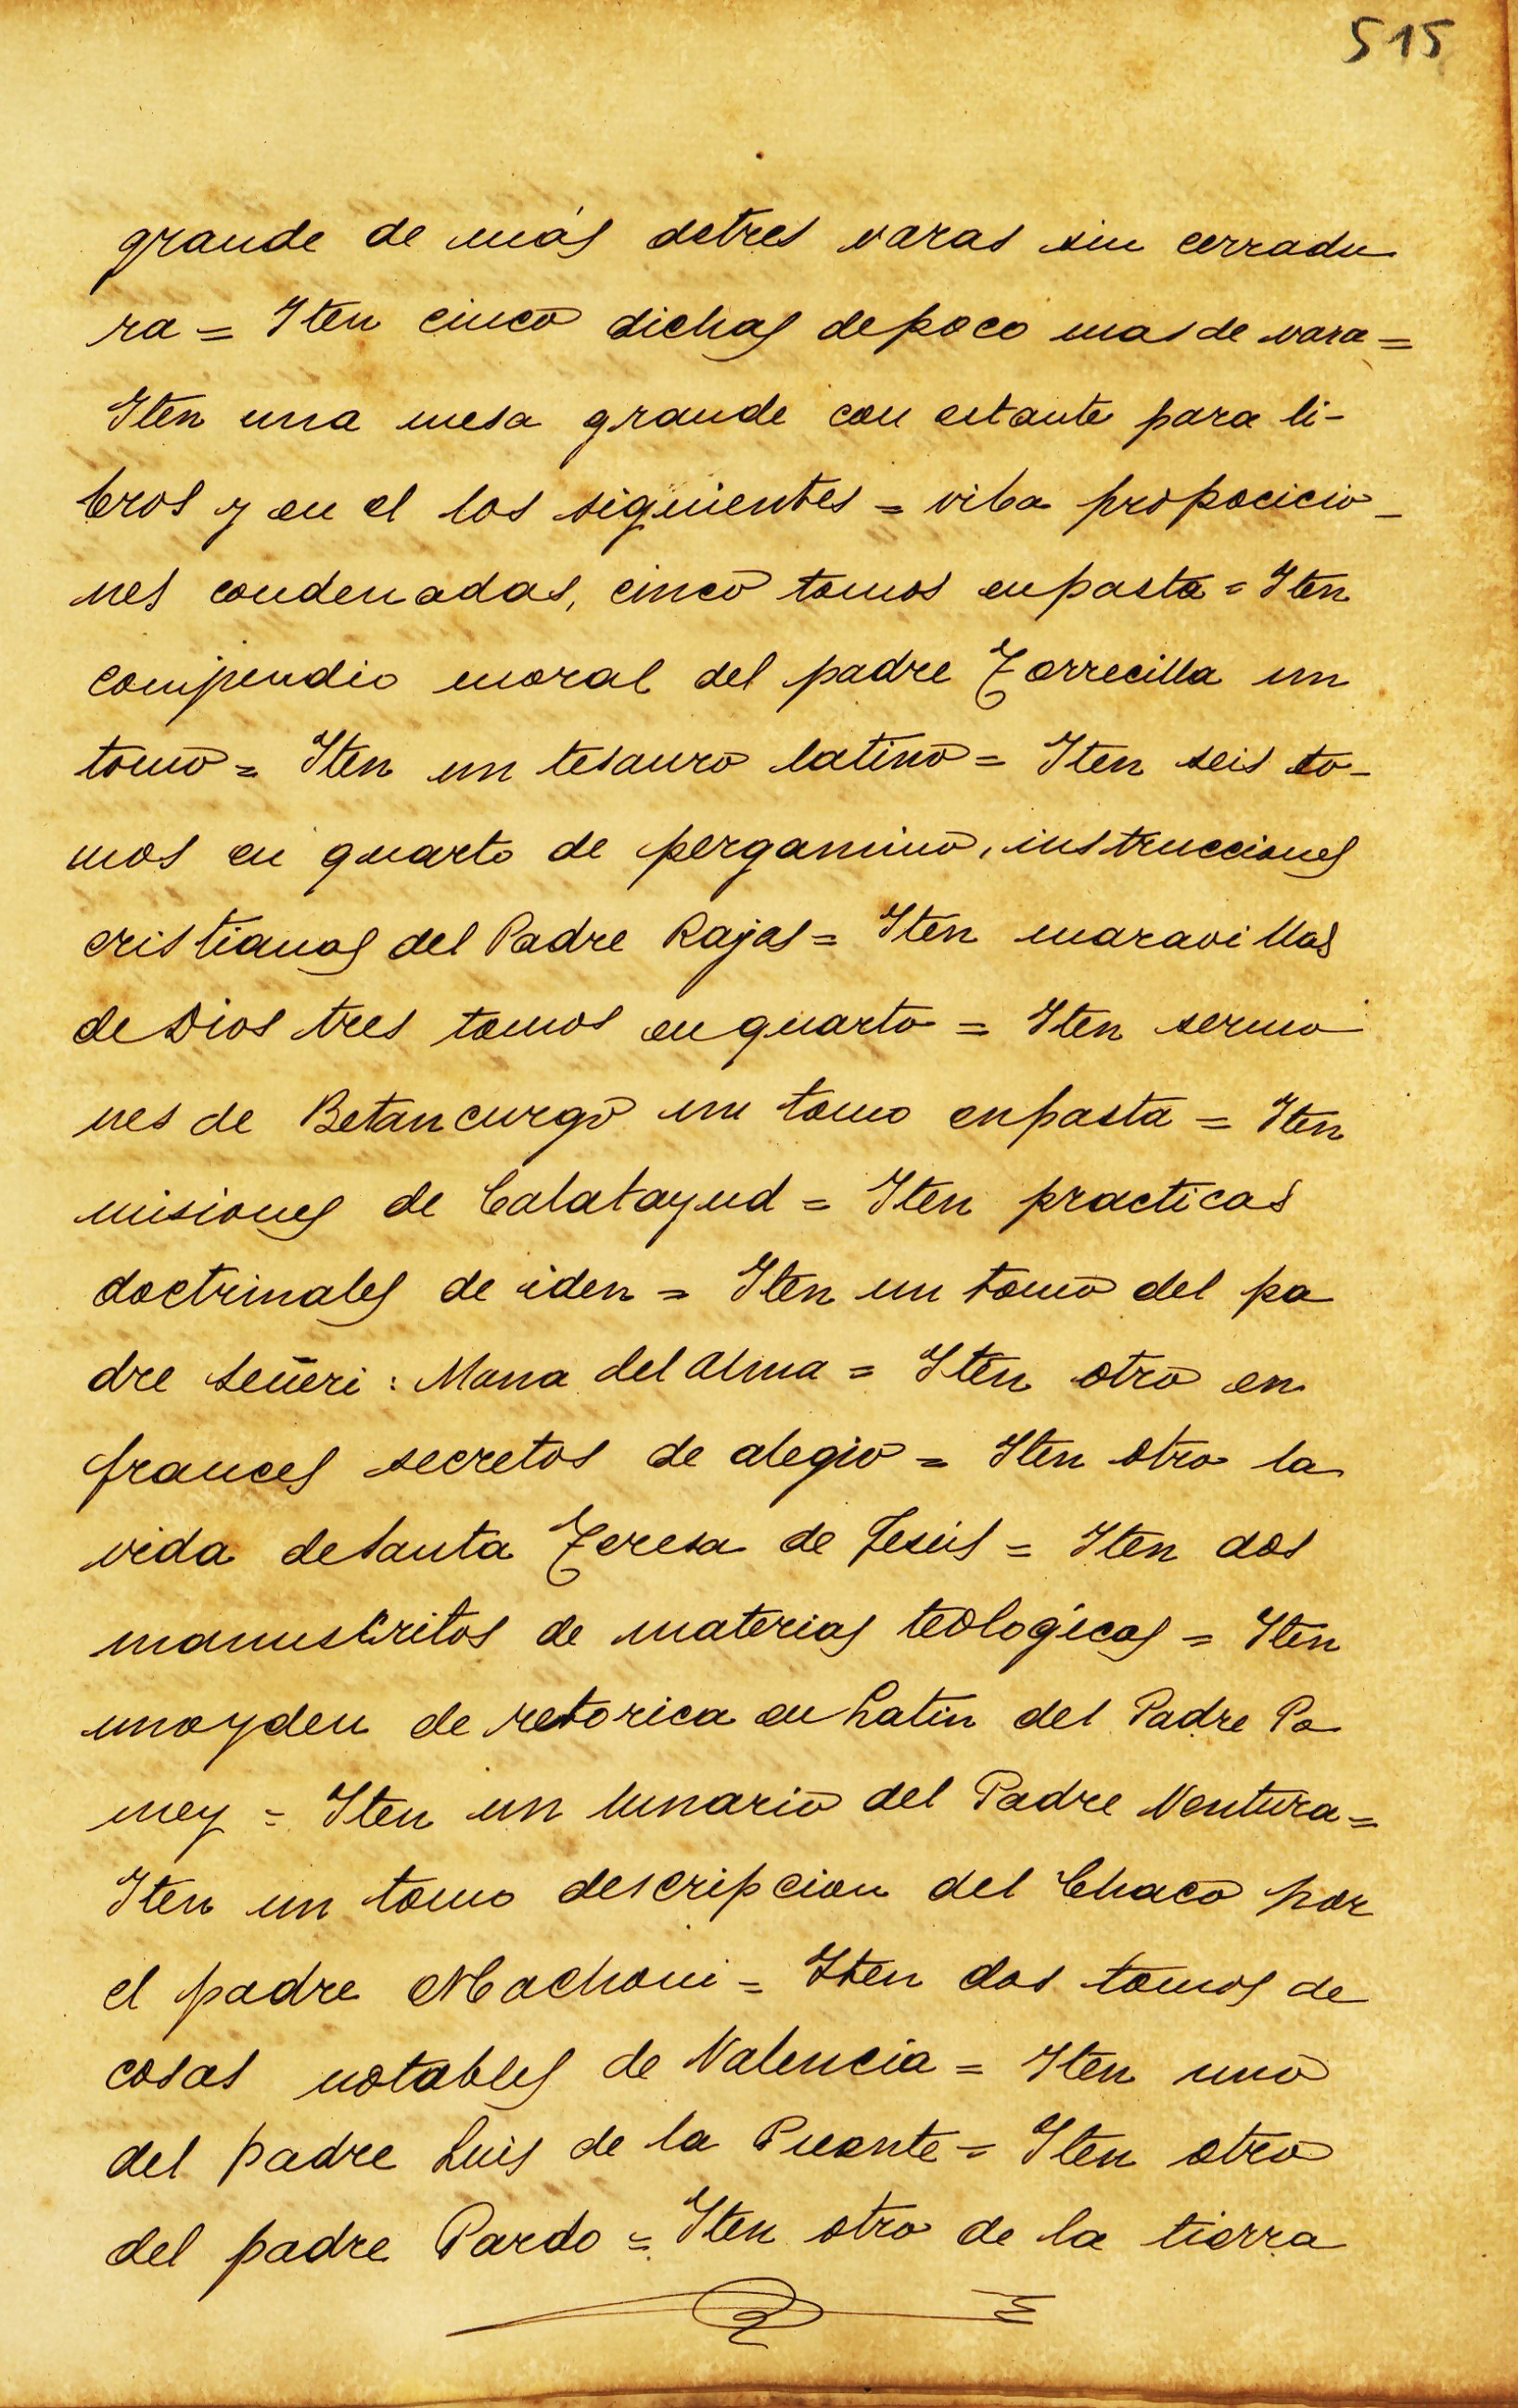 515
grande de más detres varas sin cerradu
ra = Iten cinco dichas depoco mas de vara =
Iten una mesa grande con estante para li-
bros y en el los siguientes = viba propocicio-
nes condenadas, cinco tomos enpasta = Iten
compendio moral del padre Torrecilla un
tomo = Iten un tesauro latino = Iten seis to-
mos en quarto de pergamino, instrucciones
cristianas del Padre Rajas = Iten maravillas
de Dios tres tomos en quarto = Iten sermo
nes de Betancurgo un tomo enpasta = Iten
misiones de Calatayud = Iten practicas
doctrinales de iden = Iten un tomo del pa
dre Señeri : Mana del Alma = Iten otro en
frances secretos de alegio = Iten otro la
vida desanta Teresa de Jesús = Iten dos
manuscritos de materias teológicas = Iten
unoyden de retorica en Latin del Padre Po
mey = Iten un lunario del Padre Ventura =
Iten un tomo descripcion del Chaco por
el padre Machoni = Iten dos tomos de
cosas notables de Valencia = Iten uno
del padre Luis de la Puente = Iten otro
del padre Pardo = Iten otro de la tierra